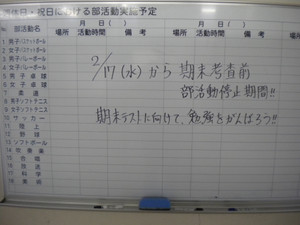 週休日・祝日における部活動実施予定
月 日( ) 月 日( )
No 部活動名 場所 活動時間 備考 場所 活動時間 備考
1 男子バスケットボール
2 女子バスケットボール
3 男子バレーボール
4 女子バレーボール
5 男子卓球
6 女子卓球
7 柔道
8 男子ソフトテニス
9 女子ソフトテニス
10 サッカー
11 陸上
12 野球
13 ソフトボール
14 吹奏楽
15 合唱
16 放送
17 科学
18 美術
2/17(水)から 期末考査前
部活動停止期間!!
期末テストに向けて、勉強をがんばろう!!